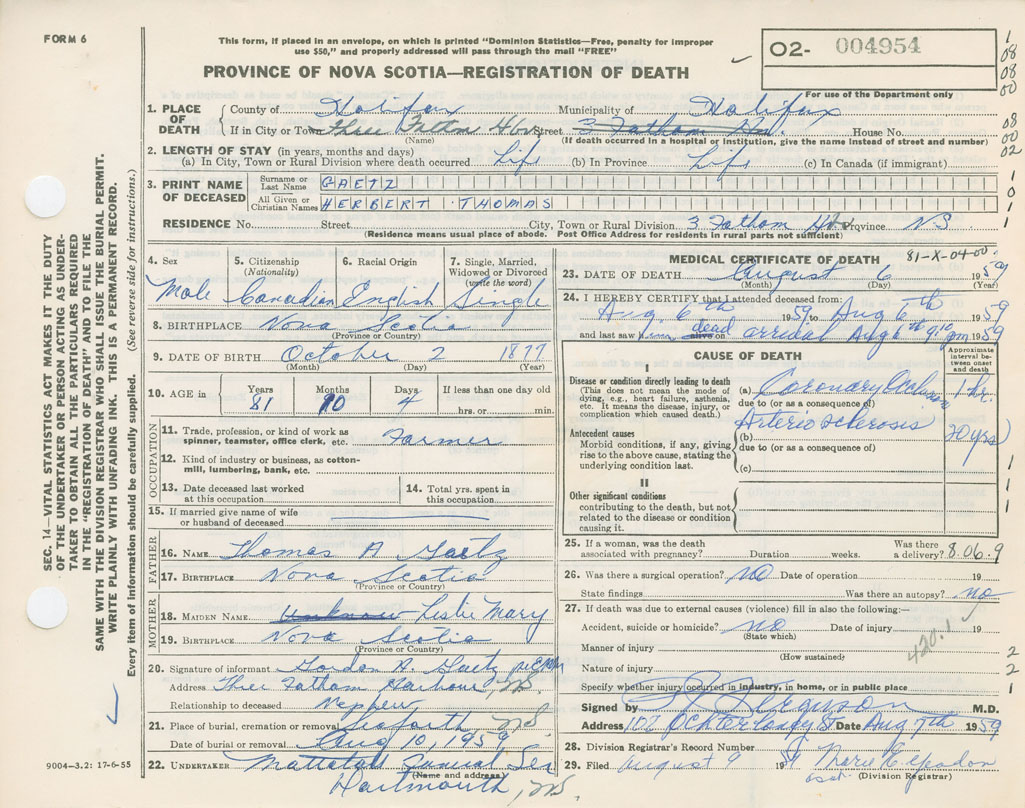 FORM 6
This form, if placed in an envelope, on which is printed "Dominion Statistics—Free, penalty for improper
use $50," and properly addressed will pass through the mail "FREE"
PROVINCE OF NOVA SCOTIA—REGISTRATION OF DEATH
02- 004954
For use of the Department only
1
08
08
00
1. PLACE OF DEATH
County of Halifax Municipality of Halifax
If in City or Town Three Fathm Hbr Street 3 Fathom House No.
(Name) (If death occurred in a hospital or institution, give the name instead of street and number)
08
00
02
2. LENGTH OF STAY (in years, months and days)
(a) In City, Town or Rural Division where death occurred Life (b) In Province Life (c) In Canada (if immigrant)
3. PRINT NAME OF DECEASED
Surname or Last Name GAETZ
All Given or Christian Names HERBERT THOMAS
1
0
1
RESIDENCE No. Street City, Town or Rural Division 3 Fathom Hbr Province NS
(Residence means usual place of abode. Post Office Address for residents in rural parts not sufficient)
4. Sex 5. Citizenship (Nationality) 6. Racial Origin 7. Single, Married, Widowed or Divorced (write the word)
Male Canadian English Single
8. BIRTHPLACE Nova Scotia
(Province or Country)
9. DATE OF BIRTH October 2 1877
(Month) (Day) (Year)
10. AGE in Years 81 Months 10 Days 4 If less than one day old hrs. or min.
OCCUPATION
11. Trade, profession, or kind of work as spinner, teamster, office clerk, etc. Farmer
12. Kind of industry or business, as cotton-mill, lumbering, bank, etc.
13. Date deceased last worked at this occupation
14. Total yrs. spent in this occupation
15. If married give name of wife or husband of deceased
FATHER
16. NAME Thomas A Gaetz
17. BIRTHPLACE Nova Scotia
MOTHER
18. MAIDEN NAME Unknown Leslie Mary
19. BIRTHPLACE Nova Scotia
(Province or Country)
20. Signature of informant Gordon A. Gaetz
Address Three Fathom Harbour, NS.
Relationship to deceased Nephew
21. Place of burial, cremation or removal Seaforth NS
Date of burial or removal Aug 10, 1959
22. UNDERTAKER Mattatall Funeral Ser
(Name and address)
Dartmouth, NS.
MEDICAL CERTIFICATE OF DEATH 81-X-04-00
23. DATE OF DEATH August 6 1959
(Month) (Day) (Year)
24. I HEREBY CERTIFY that I attended deceased from:
Aug. 6th 1959 to Aug 6th 1959
and last saw him alive on dead arrival Aug 6th 9.10 pm 1959
CAUSE OF DEATH
Approximate interval between onset and death
I
Disease or condition directly leading to death
(This does not mean the mode of dying, e.g., heart failure, asthenia, etc. It means the disease, injury, or complication which caused death.)
(a) Coronary Occlusion 1 hr.
due to (or as a consequence of)
Arterio sclerosis 20 yrs
(b)
due to (or as a consequence of)
(c)
Antecedent causes
Morbid conditions, if any, giving rise to the above cause, stating the underlying condition last.
II
Other significant conditions
contributing to the death, but not related to the disease or condition causing it.
1
1
1
25. If a woman, was the death associated with pregnancy? Duration weeks. Was there a delivery? 8.06.9
26. Was there a surgical operation? no Date of operation 19
State findings Was there an autopsy? no
27. If death was due to external causes (violence) fill in also the following:—
Accident, suicide or homicide? no Date of injury 19
(State which)
420.1
Manner of injury
(How sustained)
Nature of injury
Specify whether injury occurred in industry, in home, or in public place
2
2
1
Signed by Ferguson M.D.
Address 102 Ochterloney St Date Aug 7th 1959
28. Division Registrar's Record Number
29. Filed August 9 19 Marie E.
(Division Registrar)
SEC. 14—VITAL STATISTICS ACT MAKES IT THE DUTY
OF THE UNDERTAKER OR PERSON ACTING AS UNDER-
TAKER TO OBTAIN ALL THE PARTICULARS REQUIRED
IN THE "REGISTRATION OF DEATH" AND TO FILE THE
SAME WITH THE DIVISION REGISTRAR WHO SHALL ISSUE THE BURIAL PERMIT.
WRITE PLAINLY WITH UNFADING INK. THIS IS A PERMANENT RECORD.
Every item of information should be carefully supplied. (See reverse side for instructions.)
9004—3.2: 17-6-55